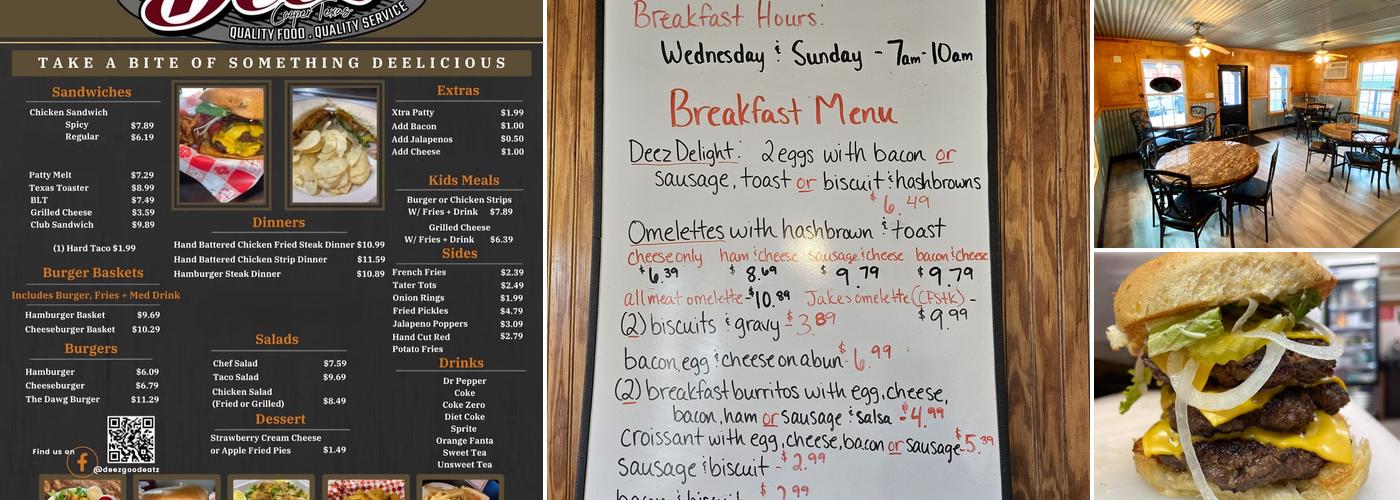 Cooper Texas
QUALITY FOOD . QUALITY SERVICE
TAKE A BITE OF SOMETHING DEELICIOUS
Sandwiches
Chicken Sandwich
Spicy $7.89
Regular $6.19
Patty Melt $7.29
Texas Toaster $8.99
BLT $7.49
Grilled Cheese $3.59
Club Sandwich $9.89
(1) Hard Taco $1.99
Burger Baskets
Includes Burger, Fries + Med Drink
Hamburger Basket $9.69
Cheeseburger Basket $10.29
Burgers
Hamburger $6.09
Cheeseburger $6.79
The Dawg Burger $11.29
Find us on
@deezgoodeatz
Dinners
Hand Battered Chicken Fried Steak Dinner $10.99
Hand Battered Chicken Strip Dinner $11.59
Hamburger Steak Dinner $10.89
Salads
Chef Salad $7.59
Taco Salad $9.69
Chicken Salad
(Fried or Grilled) $8.49
Dessert
Strawberry Cream Cheese
or Apple Fried Pies $1.49
Extras
Xtra Patty $1.99
Add Bacon $1.00
Add Jalapenos $0.50
Add Cheese $1.00
Kids Meals
Burger or Chicken Strips
W/ Fries + Drink $7.89
Grilled Cheese
W/ Fries + Drink $6.39
Sides
French Fries $2.39
Tater Tots $2.49
Onion Rings $1.99
Fried Pickles $4.79
Jalapeno Poppers $3.09
Hand Cut Red $2.79
Potato Fries
Drinks
Dr Pepper
Coke
Coke Zero
Diet Coke
Sprite
Orange Fanta
Sweet Tea
Unsweet Tea
Breakfast Hours:
Wednesday & Sunday - 7am-10am
Breakfast Menu
Deez Delight: 2 eggs with bacon or
sausage, toast or biscuit & hashbrowns
$6.49
Omelettes with hashbrown & toast
cheese only ham & cheese sausage & cheese bacon & cheese
$6.39 $8.69 $9.79 $9.79
all meat omelette - $10.89 Jakes omelette (CFStk) -
$9.99
(2) biscuits & gravy - $3.89
bacon, egg & cheese on a bun - $6.99
(2) breakfast burritos with egg, cheese,
bacon, ham or sausage & salsa - $4.99
Croissant with egg, cheese, bacon or sausage - $5.39
sausage & biscuit - $2.99
bacon & biscuit - $2.99